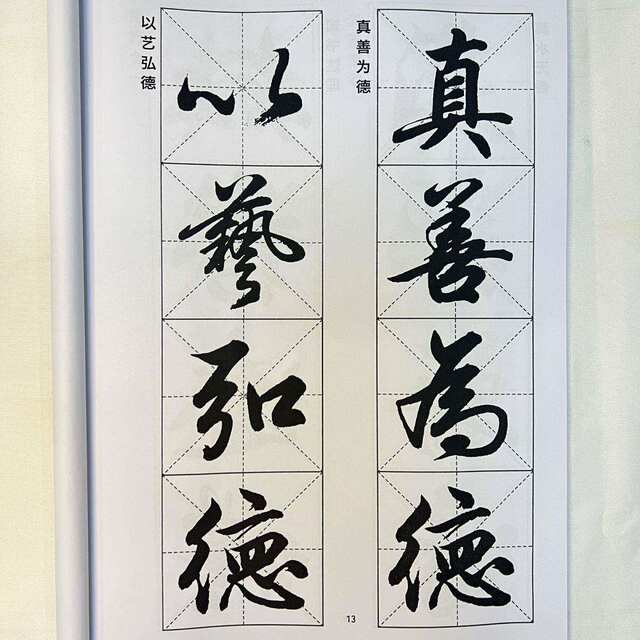 真善为德
真善為德
以艺弘德
以藝弘德
13